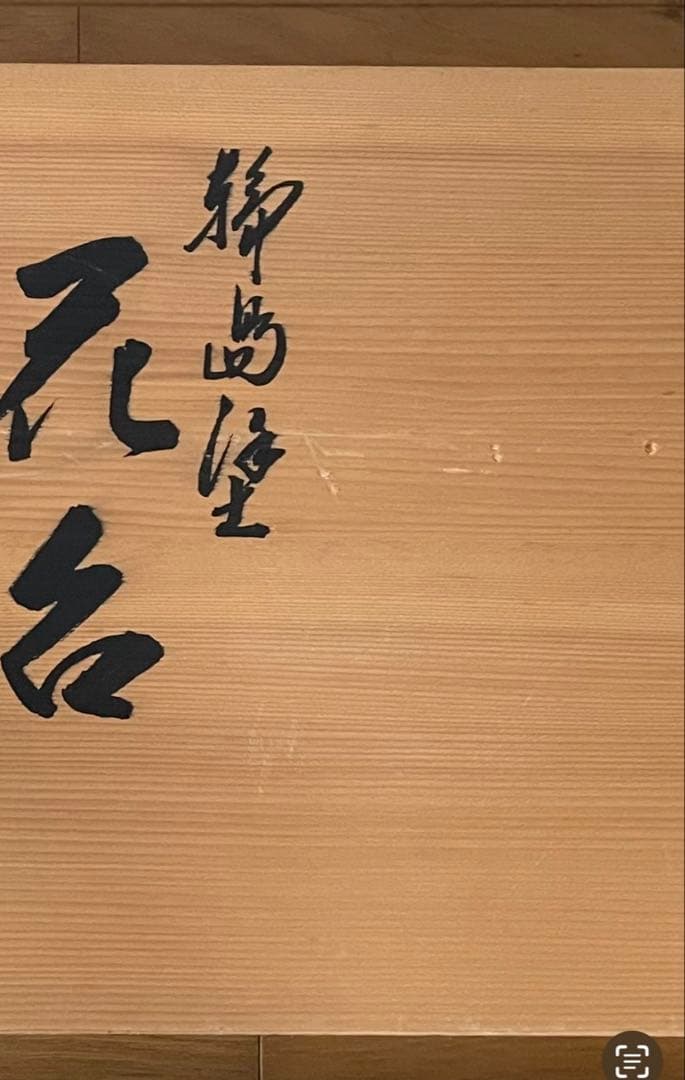 輪島塗
花台